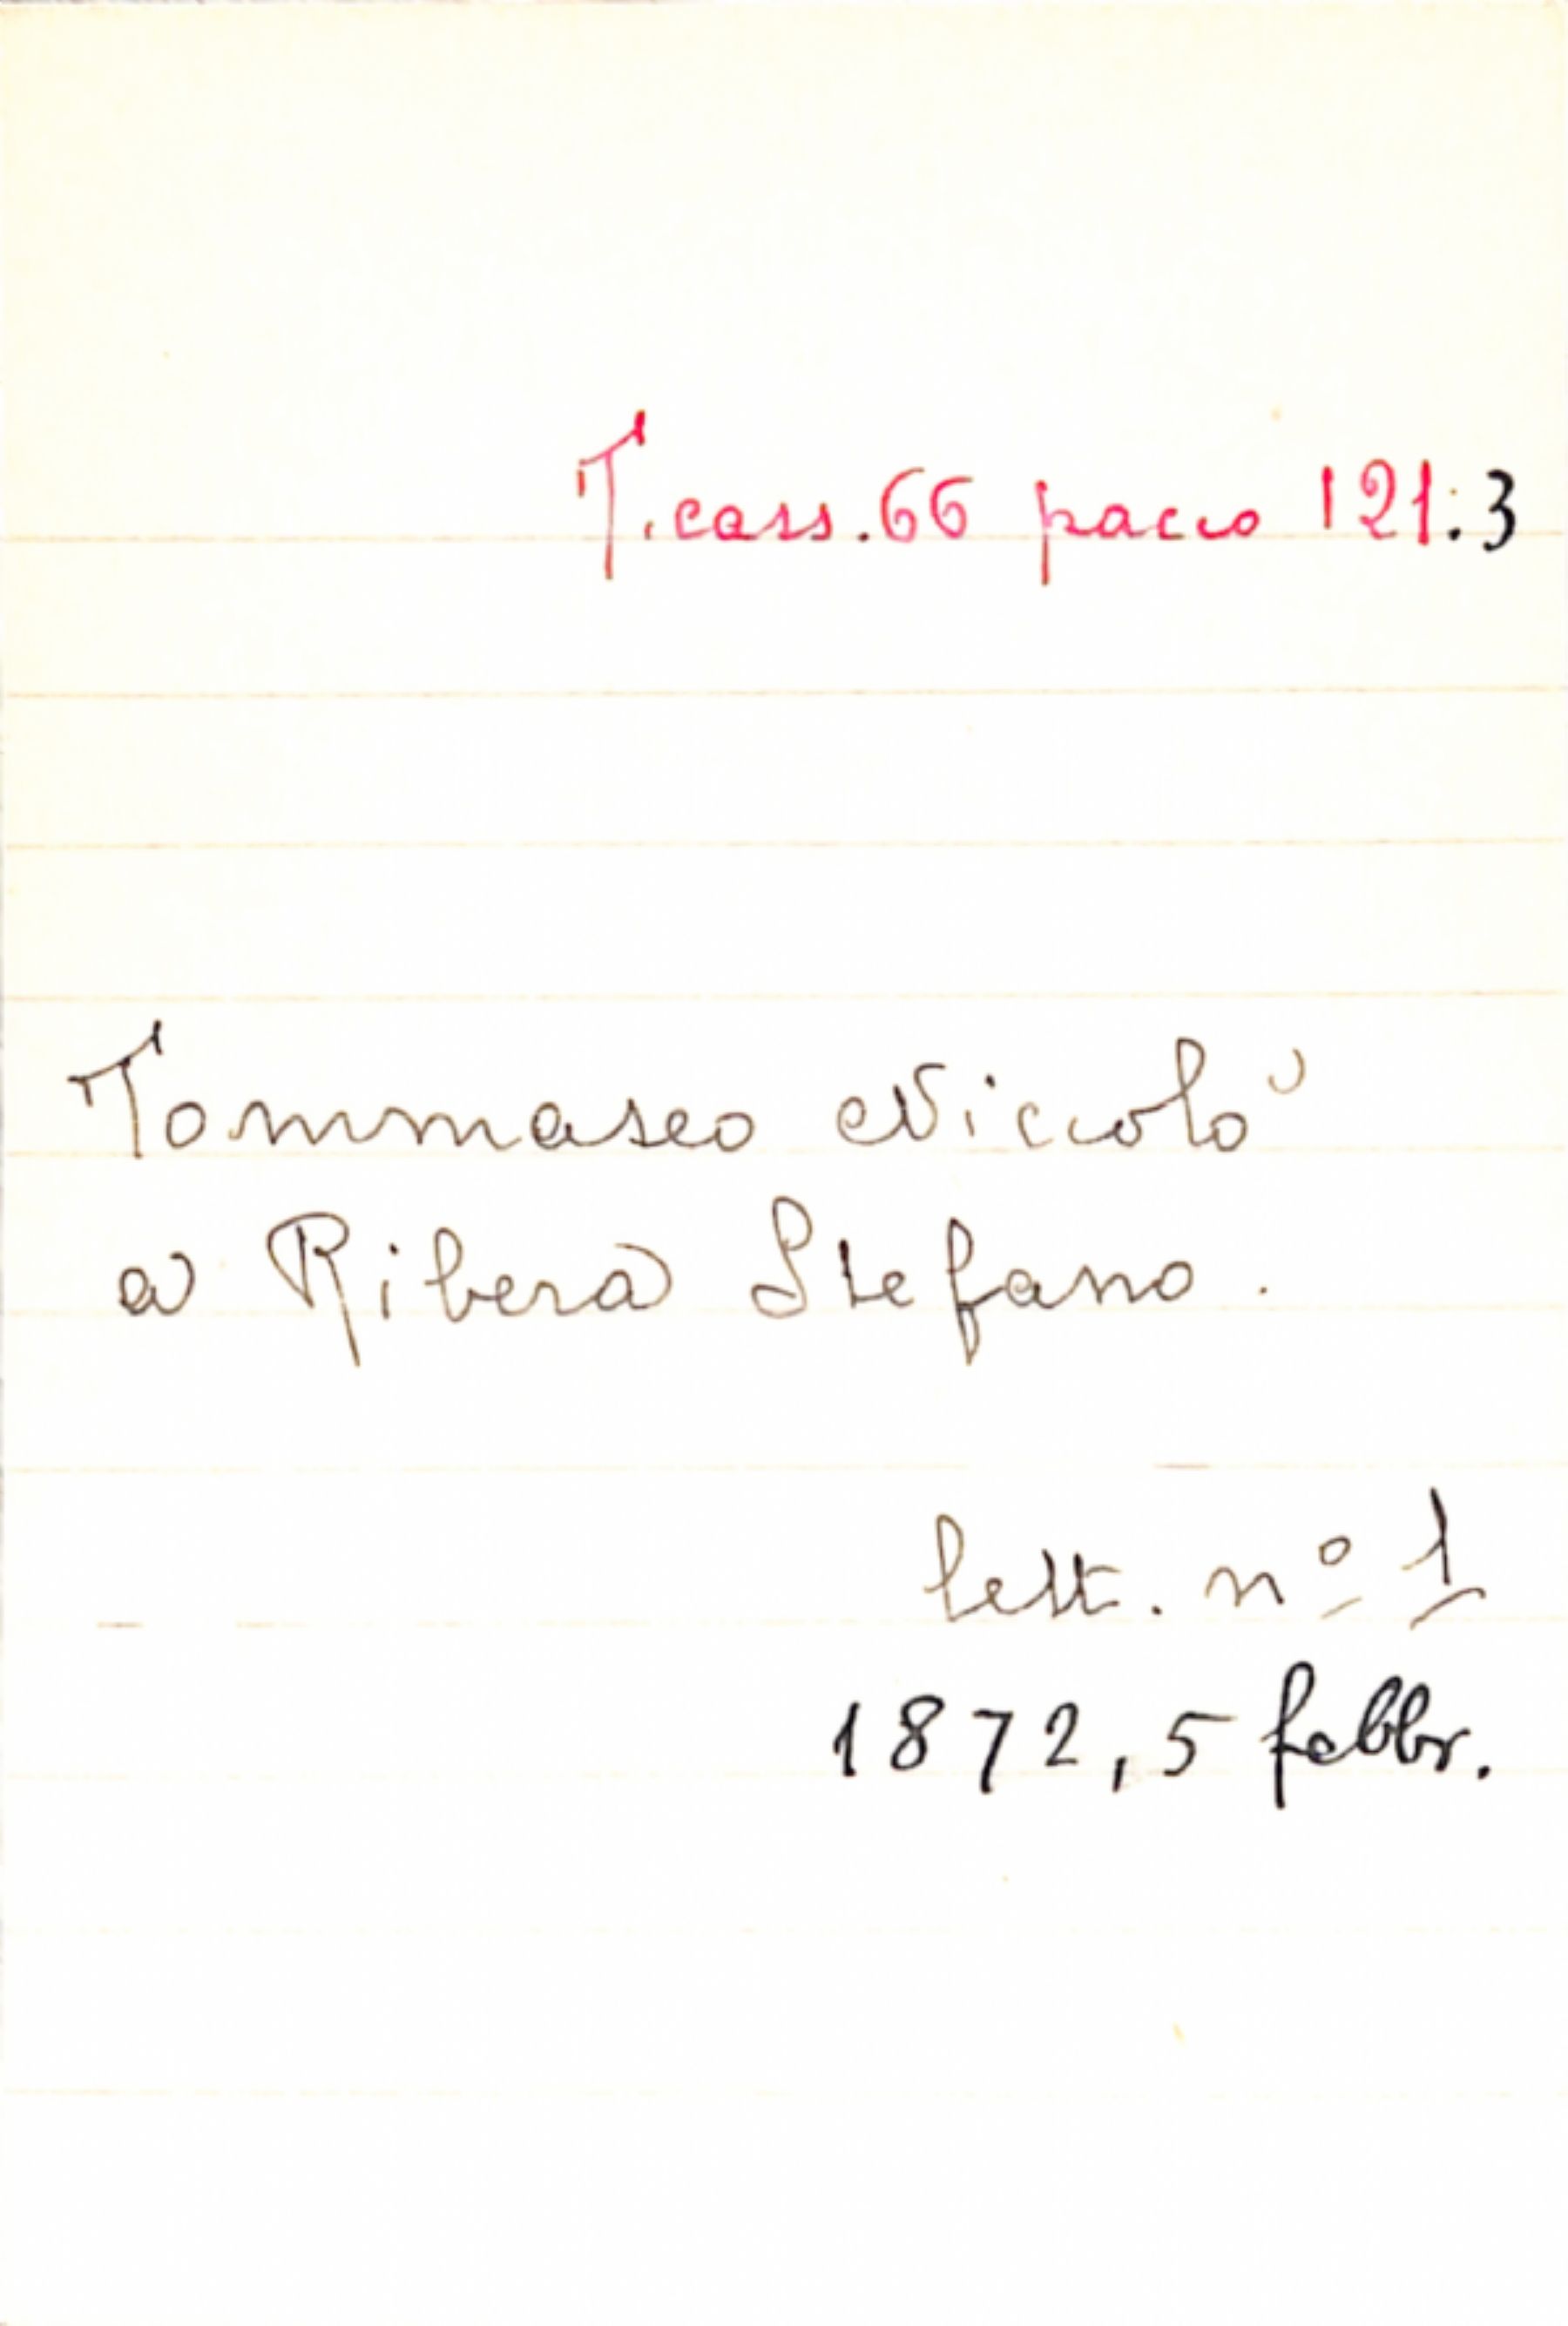 T. cass. 66 pacco 121.3
Tommaseo Niccolò
a Ribera Stefano.
lett. nº 1
1872, 5 febbr.